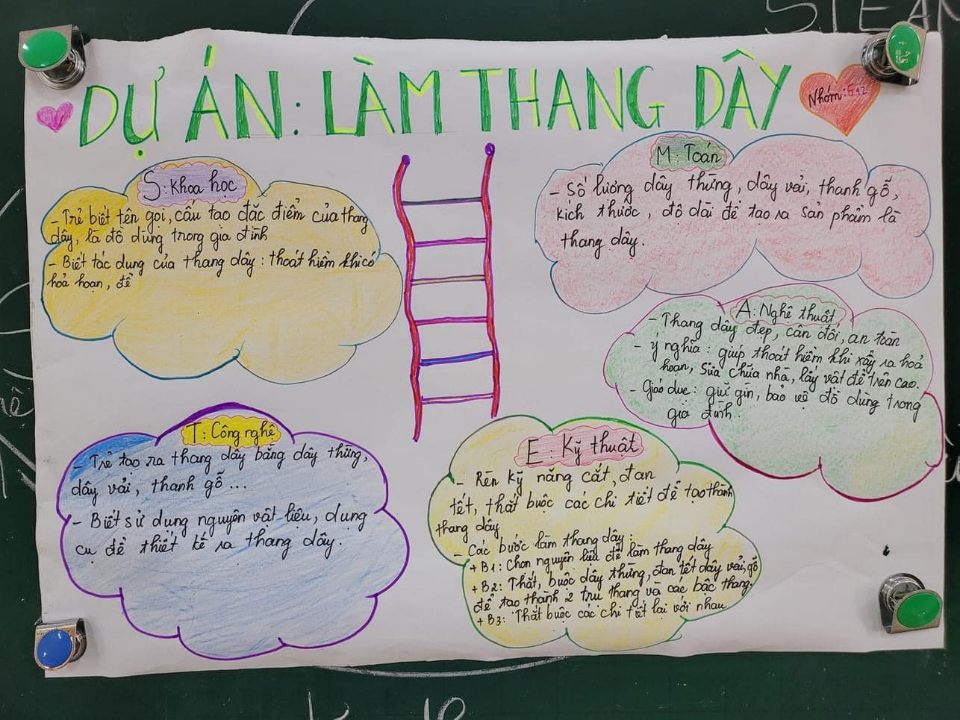 STEAM
DỰ ÁN: LÀM THANG DÂY
S: Khoa học
- Trẻ biết tên gọi, cấu tạo đặc điểm của thang
dây, là đồ dùng trong gia đình
- Biết tác dụng của thang dây: thoát hiểm khi có
hoả hoạn, để
M: Toán
- Số lượng dây thừng, dây vải, thanh gỗ,
kích thước, độ dài để tạo ra sản phẩm là
thang dây.
A: Nghệ thuật
- Thang dây đẹp, cân đối, an toàn
- Ý nghĩa: giúp thoát hiểm khi xẩy ra hoả
hoạn, sửa chữa nhà, lấy vật để trên cao.
- Giáo dục: giữ gìn, bảo vệ đồ dùng trong
gia đình.
T: Công nghệ
- Trẻ tạo ra thang dây bằng dây thừng,
dây vải, thanh gỗ...
- Biết sử dụng nguyên vật liệu, dụng
cụ để thiết kế ra thang dây.
E: Kỹ thuật
- Rèn kỹ năng cắt, đan
tết, thắt buộc các chi tiết để tạo thành
thang dây
- Các bước làm thang dây:
+ B1: Chọn nguyên liệu để làm thang dây
+ B2: Thắt, buộc dây thừng, đan tết dây vải, gỗ
để tạo thành 2 trụ thang và các bậc thang.
+ B3: Thắt buộc các chi tiết lại với nhau